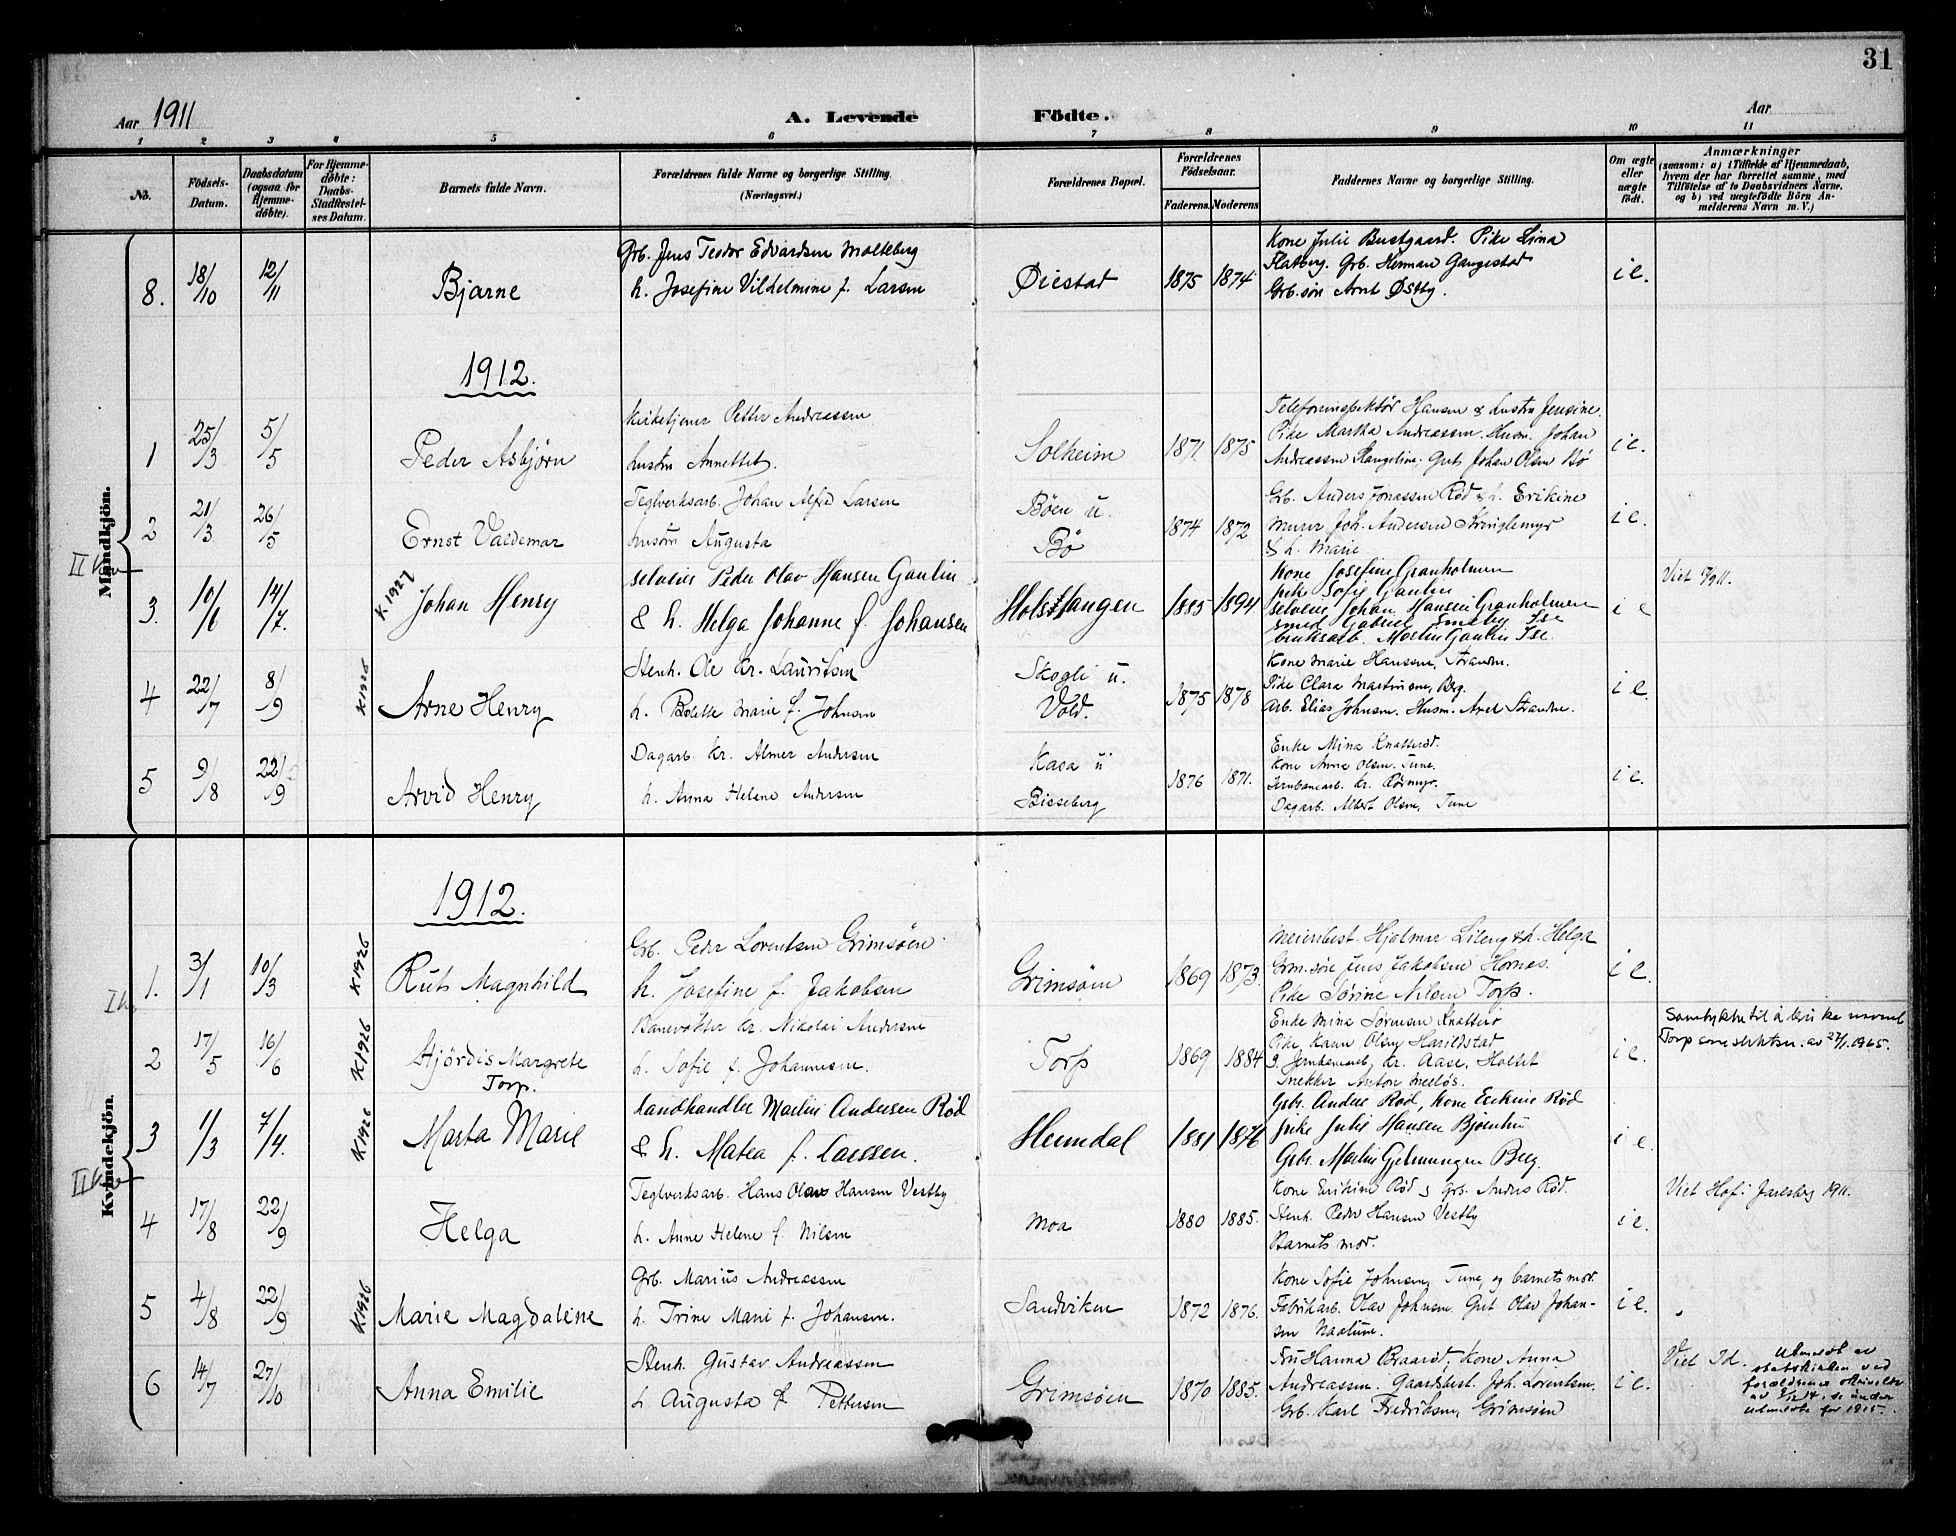 31
Aar 1911
A. Levende Födte.
Aar
1 2 3 4 5 6 7 8 9 10 11
No.
Födsels-Datum.
Daabsdatum (ogsaa for Hjemme-döbte).
For Hjemme-döbte: Daabs-Stadfæstel-ses Datum.
Barnets fulde Navn.
Forældrenes fulde Navne og borgerlige Stilling. (Næringsvei.)
Forældrenes Bopæl.
Forældrenes Födselsaar.
Faderens. Moderens
Faddernes Navne og borgerlige Stilling.
Om ægte eller uægte födt.
Anmærkninger
(saasom: a) i Tilfælde af Hjemmedaab,
hvem der har forrettet samme, med
Tilföielse af to Daabsvidners Navne,
og b) ved uægtefödte Börn An-
melderens Navn m. V.)
Mandkjön.
8. 18/10 12/11 Bjarne
Grb. Jens Teodor Edvardsen Molteberg
h. Josefine Vilhelmine f. Larsen
Øiestad 1875 1874
Kone Julie Bustgaard. Pike Lina
Flatberg. Grb. Herman Gangestad
Grb.søn Arnt Østby.
i e.
1912.
1 25/3 5/5 Peder Asbjørn
Kirketjener Petter Andreassen
hustru Annette.
Solheim 1871 1875
Telefoninspektør Hansen & hustru Jensine.
Pike Martha Andreassen. Husm. Johan
Andreassen Gut Johan Olsen Bø
i e.
2 21/3 26/5 Ernst Valdemar
Teglverksarb. Johan Alfred Larsen
hustru Augusta
Bøen u.
Bø
1874 1872
Grb. Anders Jonassen Rød & h. Erikine
Murer Joh. Andersen Kringlemyr
& h. Marie
i e.
3. 10/6 14/7. K 1927 Johan Henry
selveier Peder Olav Hansen Gaulin
& h. Helga Johanne f. Johansen
Holstangen 1885 1894
Kone Josefine Granholmen
pike Sofie Gaulin
selveier Johan Hansen Granholmen
smed Gabriel Smeby Ise
bruksarb. Martin Gaulin Ise.
i e
Viet 1911.
4 22/7 8/9 K1926 Arne Henry
Stenh. Ole Kr. Lauritsen
h. Bolette Marie f. Johnsen
Skogli u.
Vold.
1875 1878
Kone Marie Hanssen, Strandn.
Pike Clara Martinsen, Berg.
Arb. Elias Johnsen. Husm. Axel Strandn.
i e.
5 9/8 22/9 Arvid Henry
Dagarb. Kr. Almer Andersen
h. Anna Helene Andersen
Kasa u
Bisseberg
1876 1871.
Enke Mina Knatterød.
Kone Anna Olsen. Tune.
Jernbanearb. Kr. Rørmyr.
Dagarb. Albert Olsen, Tune
i e.
Kvindekjön.
1912.
1. 3/1 10/3 K1926 Rut Magnhild
Grb. Peder Lorentsen Grimsøen
h. Josefine f. Jakobsen
Grimsøen 1869 1873.
Meieribest. Hjalmar Lileng & h. Helga
Grm.søn Jens Jakobsen Hornes.
Pike Sørine Nilsen Torp.
i e.
2 17/5 16/6 K1926 Hjördis Margrete
Torp.
Banevokter Kr. Nikolai Andersen
h. Sofie f. Johannesen.
Torp 1869 1884
Enke Mina Sørensen Knatterø
Pike Karen Olsen Harildstad
Jernbanearb. Kr. Aase, Holtet
Snekker Anton Melløs.
i e.
Samtykke til å bruke navnet
Torp som slektsn. av 27/1.1965.
3 1/3 7/4. K1926 Marta Marie
Landhandler Martin Andersen Rød
& h. Matea f. Larssen.
Heimdal 1881 1876
Gbr. Anders Rød, Kone Erikine Rød
pike Julie Hansen Bjørnli
Gbr. Martin Gjetmungen Berg.
i e
4 17/8 22/9 Helga
Teglverksarb. Hans Olav Hansen Vestby
h. Anne Helene f. Nilsen
Moa 1880 1885.
Kone Erikine Rød & Grb. Anders Rød.
Stenh. Peder Hansen Vestby
Barnets mor.
i e.
Viet Hof i Jarlsberg 1911.
5 4/8 22/9 K1926 Marie Magdalene
Grb. Marius Andreassen
h. Trine Marie f. Johansen.
Sandviken 1872 1876.
Kone Sofie Johnsen, Tune, og barnets mor.
Fabrikarb. Olav Johnsen. Gut Olav Johan-
sen Naatune.
i e.
6 14/7 27/10 Anna Emilie
Stenh. Gustav Andreassen
h Augusta f. Pettersen
Grimsøen 1870 1885.
Fru Hanna Braarød, Kone Anna
Andreassen. Gaardsbest. Joh. Lorentsen.
Grb. Karl Fredriksen, Grimsøen
i e.
Viet Id. Utmeldt av
statskirken ved
forældrenes skrivelse
av 5/12 14, se under
utmeldte for 1915.